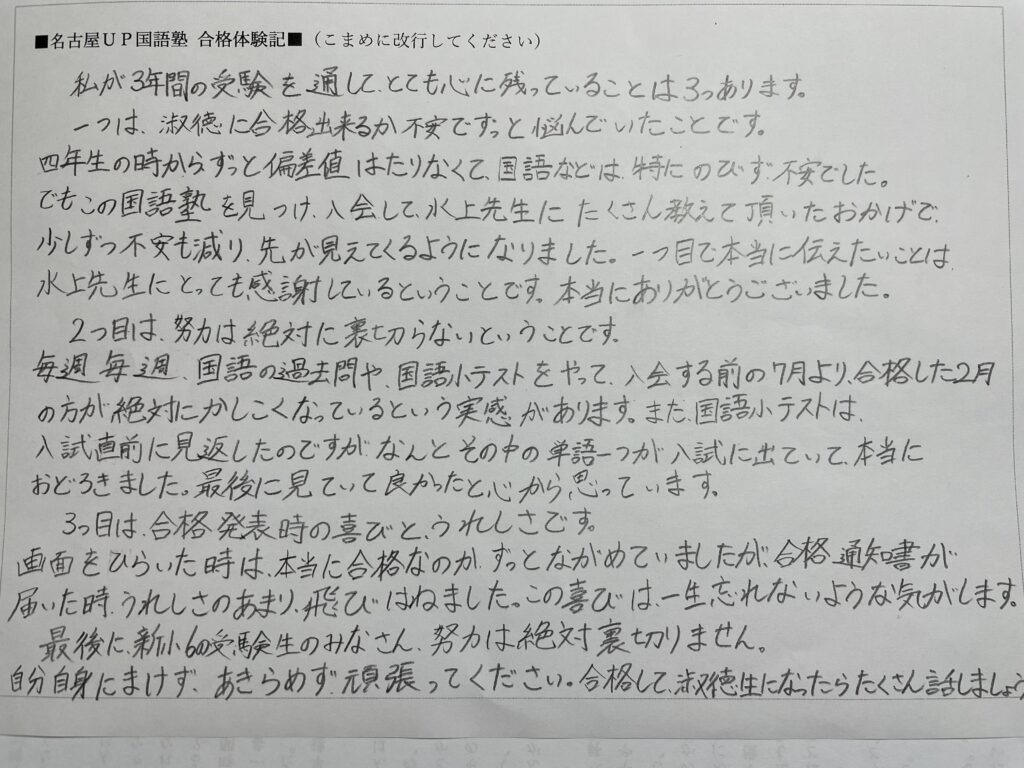 ■名古屋ＵＰ国語塾 合格体験記■（こまめに改行してください）
私が3年間の受験を通して、とても心に残っていることは3つあります。
一つは、淑徳に合格出来るか不安でずっと悩んでいたことです。
四年生の時からずっと偏差値はたりなくて、国語などは、特にのびず不安でした。
でもこの国語塾を見つけ、入会して、水上先生にたくさん教えて頂いたおかげで、
少しずつ不安も減り、先が見えてくるようになりました。一つ目で本当に伝えたいことは、
水上先生にとっても感謝しているということです。本当にありがとうございました。
2つ目は、努力は絶対に裏切らないということです。
毎週毎週、国語の過去問や、国語小テストをやって、入会する前の7月より、合格した2月
の方が絶対にかしこくなっているという実感があります。また、国語小テストは、
入試直前に見返したのですが、なんとその中の単語一つが入試に出ていて、本当に
おどろきました。最後に見ていて良かったと心から思っています。
3つ目は、合格発表時の喜びと、うれしさです。
画面をひらいた時は、本当に合格なのか、ずっとながめていましたが、合格通知書が
届いた時、うれしさのあまり、飛びはねました。この喜びは、一生忘れないような気がします。
最後に、新小6の受験生のみなさん、努力は絶対裏切りません。
自分自身にまけず、あきらめず、頑張ってください。合格して、淑徳生になったらたくさん話しましょう